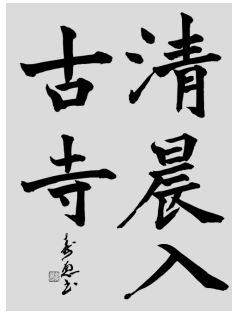 清晨入
古寺